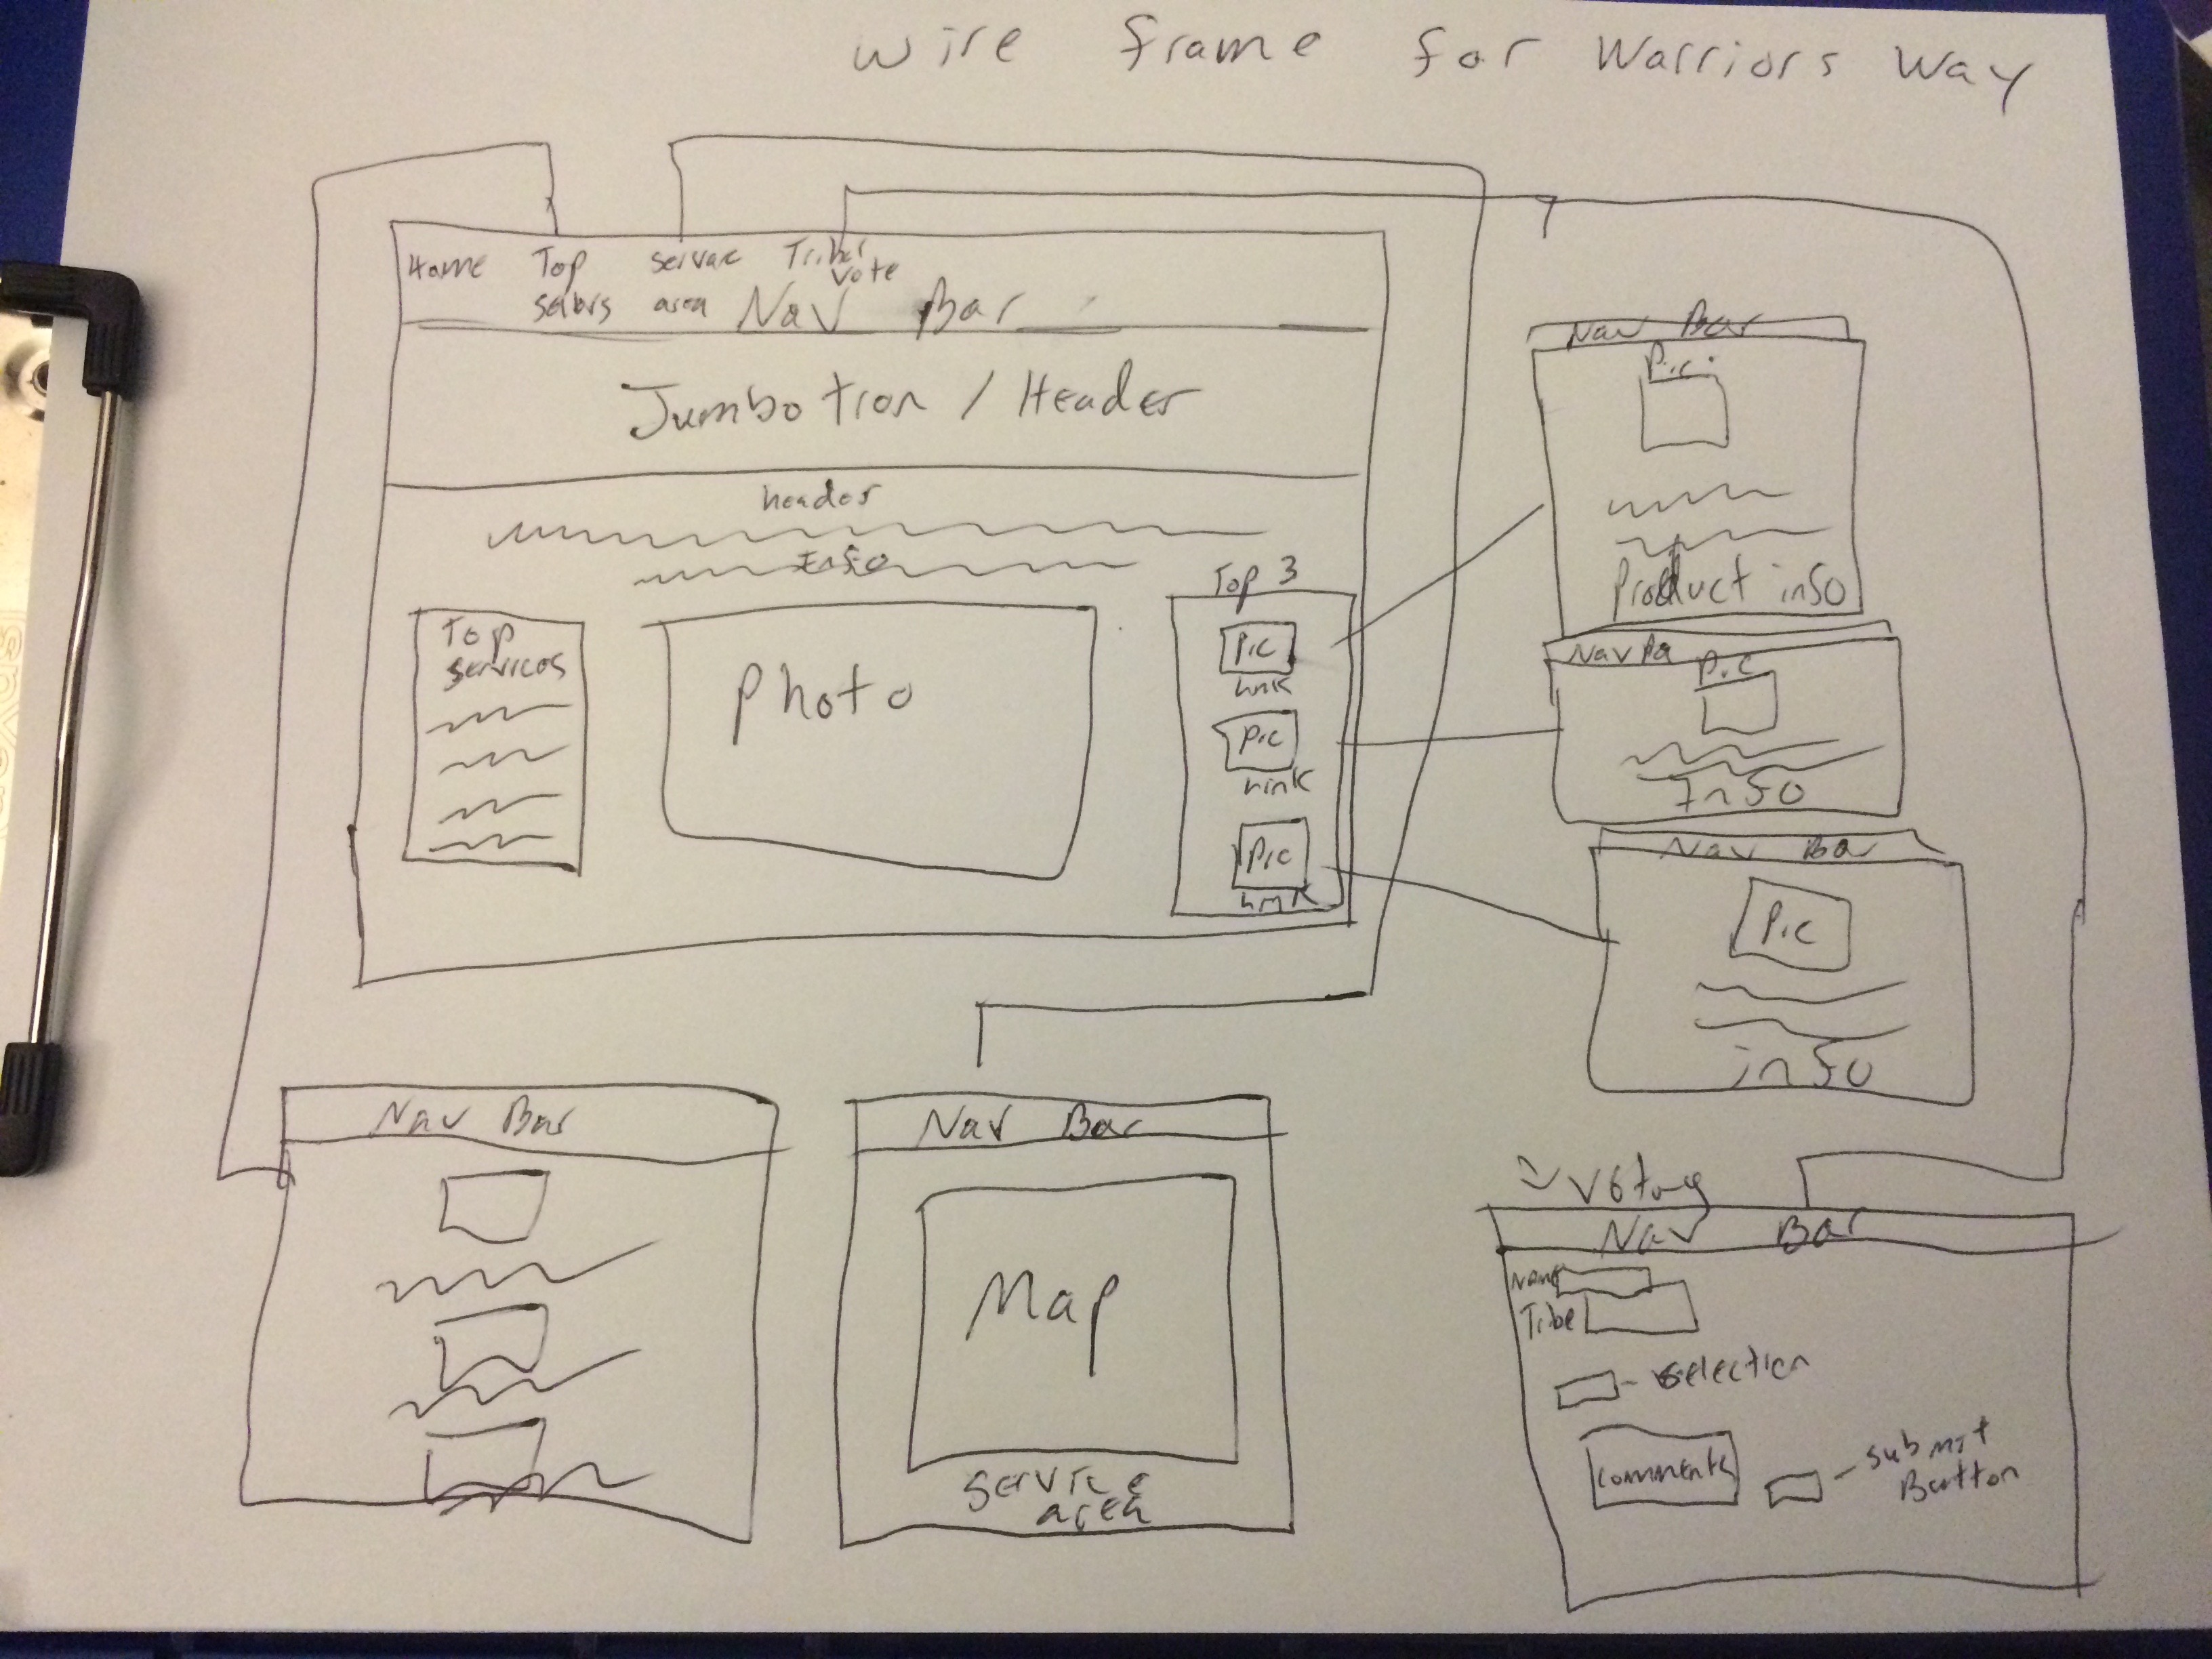 Wire frame for Warriors Way
Home Top servace Tribal
sellers area vote
Nav Bar
Jumbotron / Header
header
Info
Top
services
Photo
Top 3
Pic
link
Pic
link
Pic
link
Nav Bar
Pic
Product info
Nav Ba
Pic
Info
Nav Bar
Pic
info
Nav Bar
Nav Bar
Map
Service
area
Voting
Nav Bar
Name
Tribe
selection
comments
submit
Button